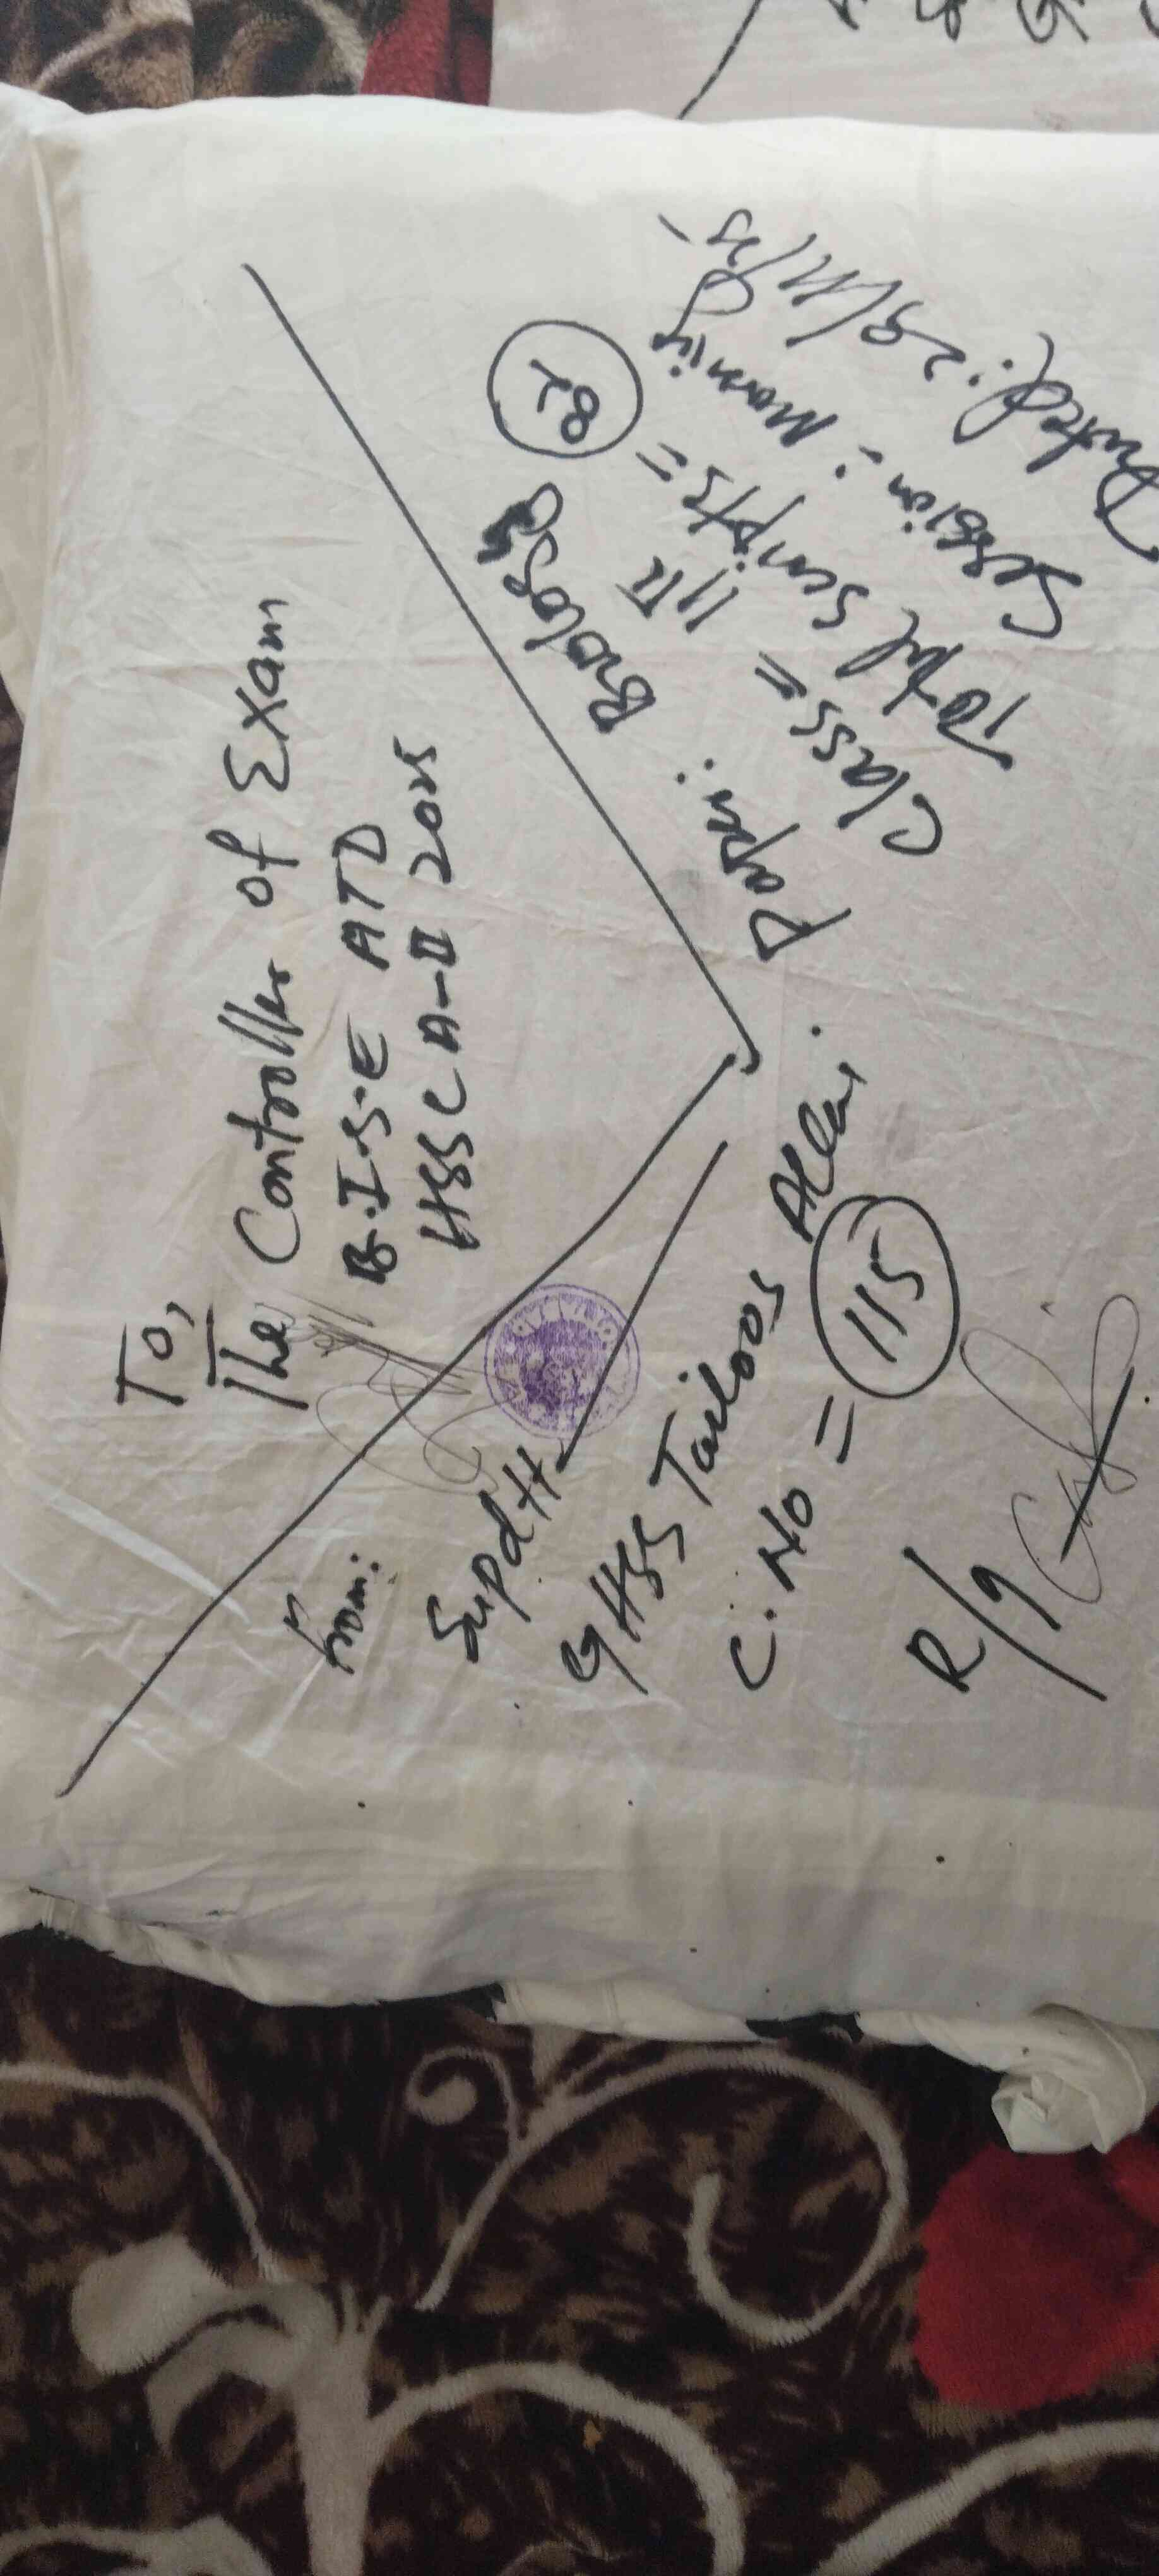 To,
The Controller of Exam
B.I.S.E ATD
HSSC A-II 2025
From:
Supdtt
GHSS Tarloos Allai.
C.No = 115
R/9
Paper: Biology
Class = 11/II
Total Scripts =
Session: Morning
Dated: